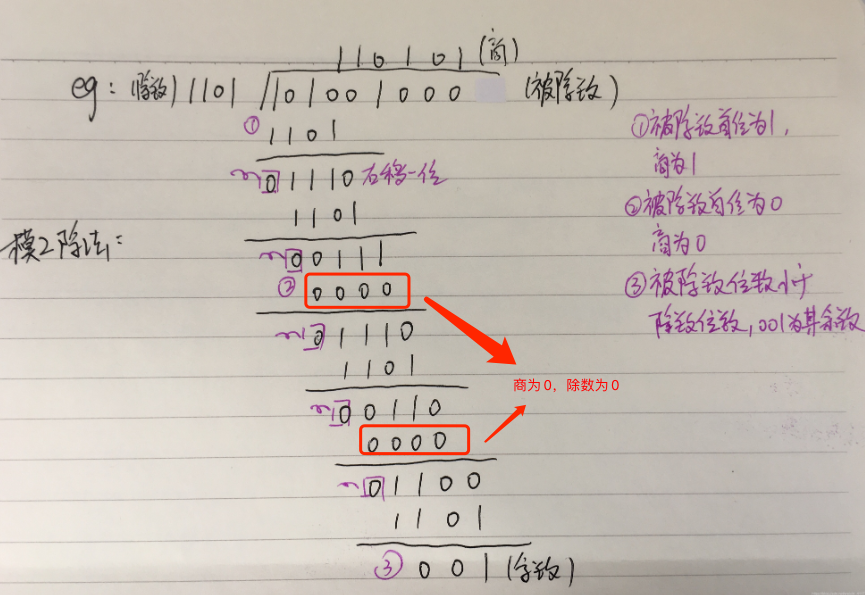 110101(商)
eg: (除数)1101 101001000 (被除数)
① 1101
01110 右移一位
1101
模2除法:
00111
② 0000
01110
1101
商为0，除数为0
00110
0000
01100
1101
③ 001 (余数)
①被除数首位为1,
商为1
②被除数首位为0
商为0
③被除数位数小于
除数位数,001为其余数